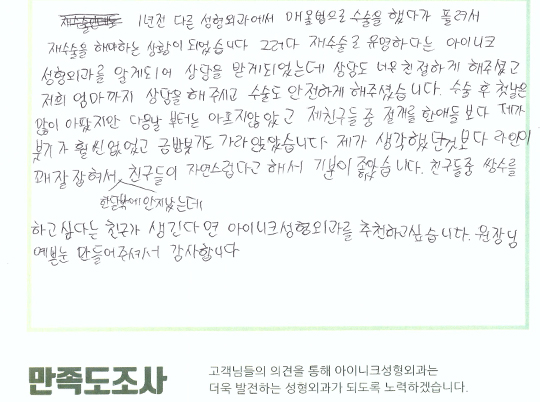 1년전 다른 성형외과에서 매몰법으로 수술을 했다가 풀려서
재수술을 해야하는 상황이 되었습니다 그러다 재수술로 유명하다는 아이니크
성형외과를 알게되어 상담을 받게되었는데 상담도 너무 친절하게 해주셨고
저희 엄마까지 상담을 해주시고 수술도 안전하게 해주셨습니다. 수술 후 첫날은
많이 아팠지만 다음날 부터는 아프지않았고 제친구들중 절개를 한애들보다 제가
붓기가 훨씬없었고 금방붓기도 가라앉았습니다 제가 생각했던것보다 라인이
꽤 잘잡혀서 친구들이 자연스럽다고 해서 기분이 좋았습니다. 친구들중 쌍수를
한달밖에 안지났는데
하고싶다는 친구가 생긴다면 아이니크성형외과를 추천하고싶습니다. 원장님
예쁜눈 만들어주셔서 감사합니다
만족도조사
고객님들의 의견을 통해 아이니크성형외과는
더욱 발전하는 성형외과가 되도록 노력하겠습니다.